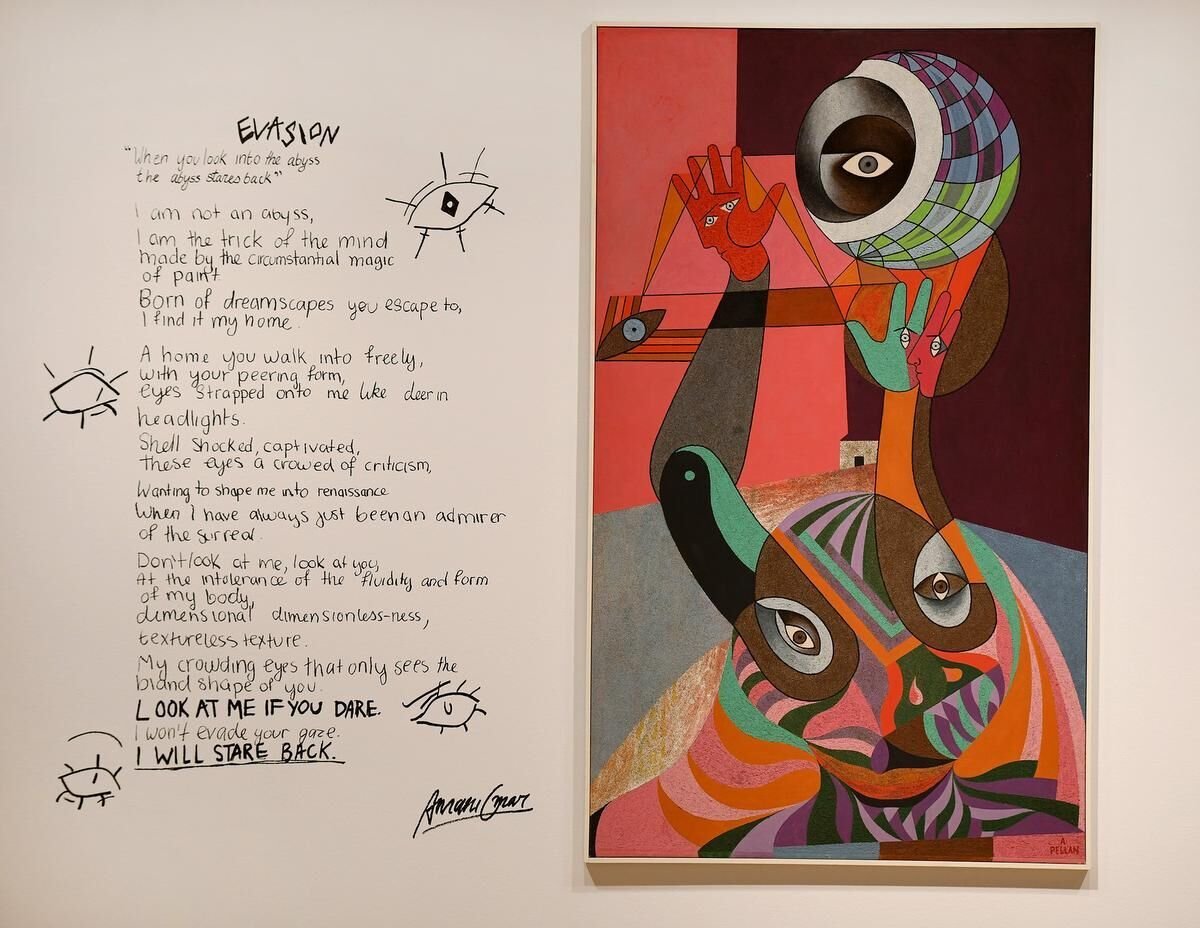 EVASION
"When you look into the abyss
the abyss stares back"
I am not an abyss,
I am the trick of the mind
made by the circumstantial magic
of paint.
Born of dreamscapes you escape to,
I find it my home.
A home you walk into freely,
with your peering form,
eyes strapped onto me like deer in
headlights.
Shell shocked, captivated,
these eyes a crowed of criticism,
Wanting to shape me into renaissance
When I have always just been an admirer
of the surreal.
Don't look at me, look at you,
At the intolerance of the fluidity and form
of my body,
dimensional dimensionless-ness,
textureless texture.
My crowding eyes that only sees the
bland shape of you.
LOOK AT ME IF YOU DARE.
I won't evade your gaze.
I WILL STARE BACK.
Omar
A
PELLAN